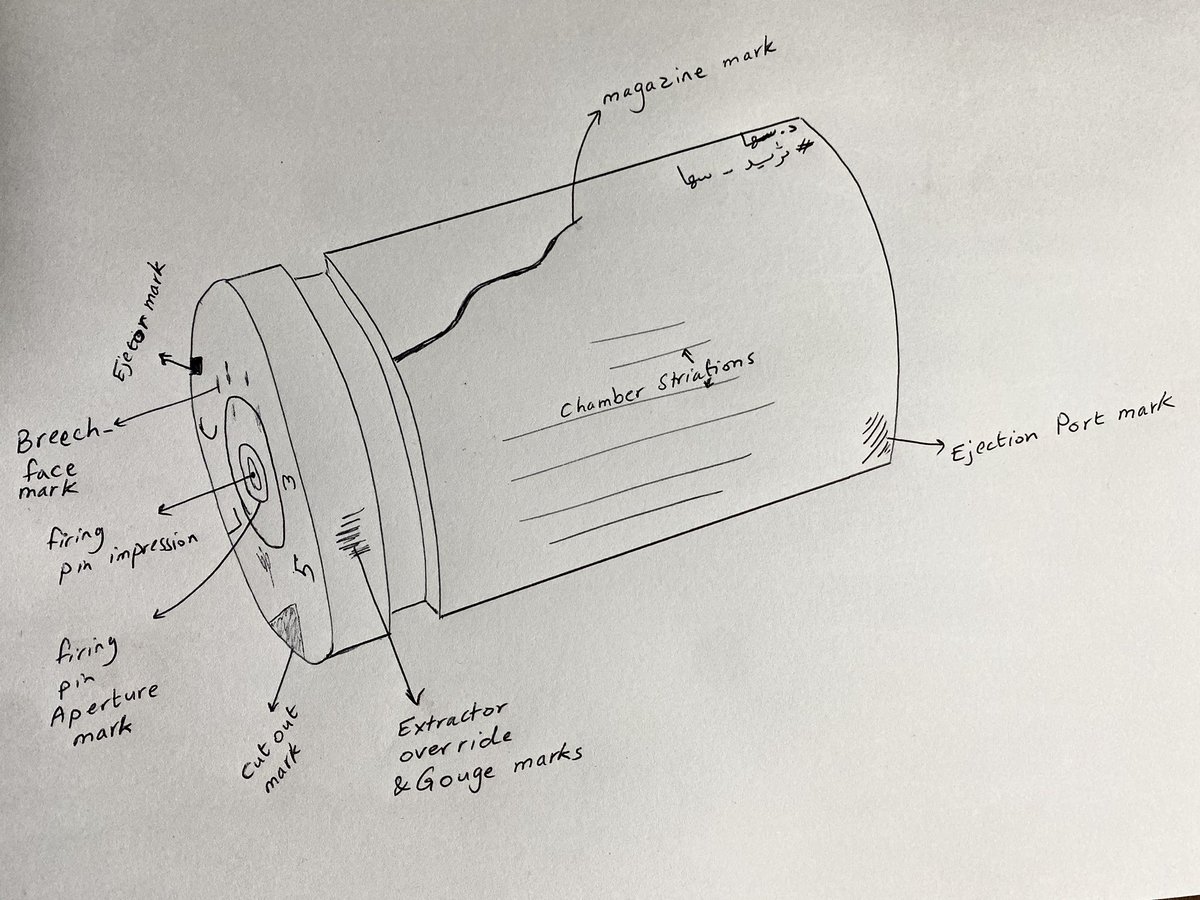 magazine mark
د.سها
# ثريد - سها
Ejector mark
Breech-
face
mark
firing
pin impression
firing
pin
Aperture
mark
Cut out
mark
Extractor
override
& Gouge marks
Chamber Striations
Ejection Port mark
C
3
5